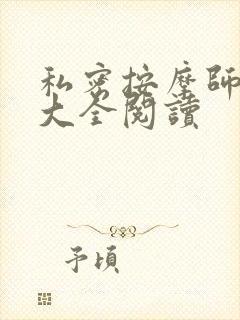 私密按摩師
大全閱讀
予頃